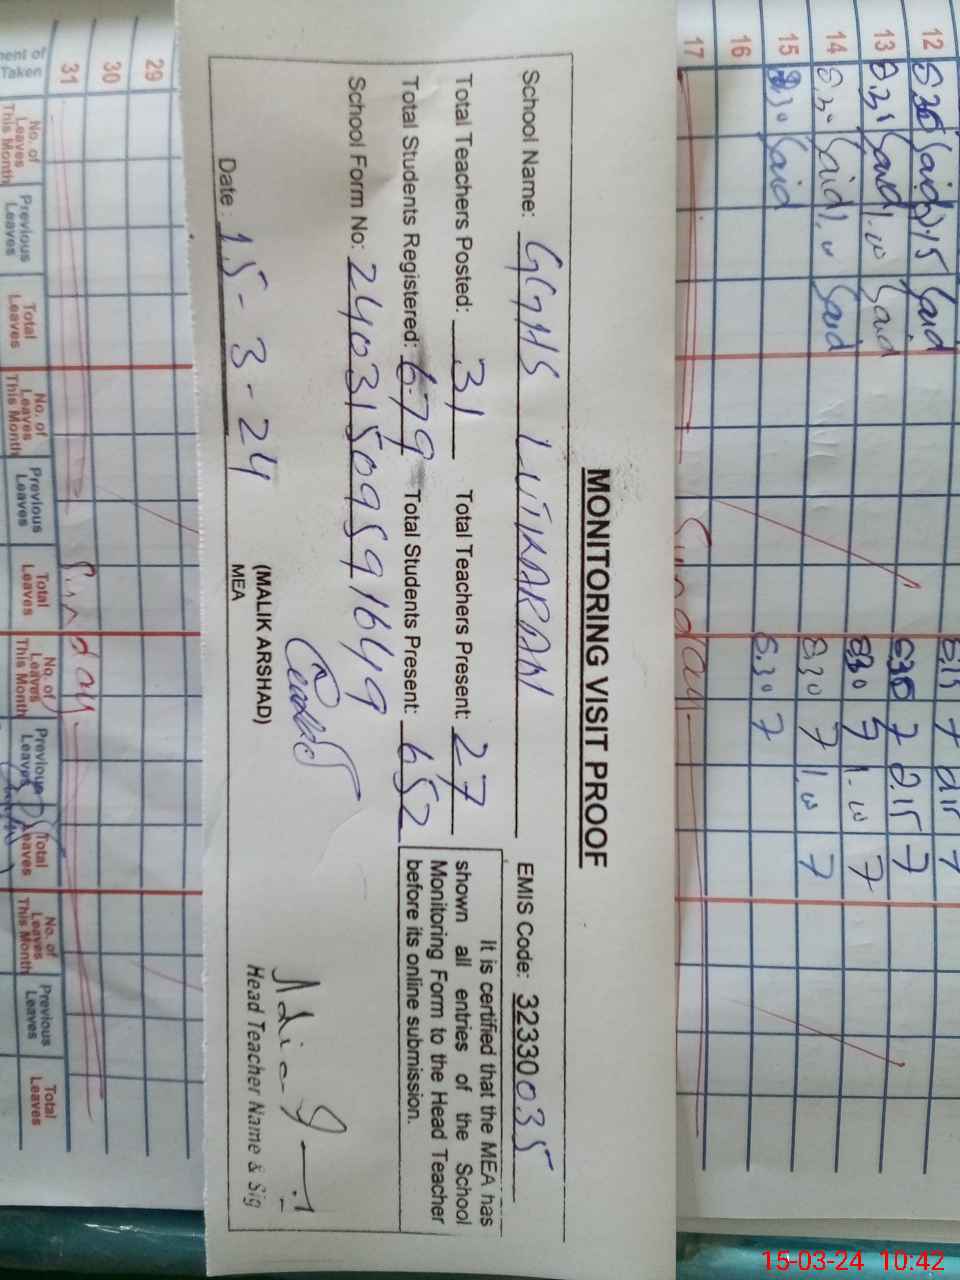 MONITORING VISIT PROOF
School Name: GGHS LUTKARAN EMIS Code: 32330035
Total Teachers Posted: 31 Total Teachers Present: 27
Total Students Registered: 679 Total Students Present: 652
School Form No: 24031509591649
It is certified that the MEA has
shown all entries of the School
Monitoring Form to the Head Teacher
before its online submission.
Date: 15-3-24
(MALIK ARSHAD)
MEA
Head Teacher Name & Sig
12 8.30 Said 2.15 Said 8.30 7 2.15 7
13 8.31 Said 1.00 Said 8.30 7 1.00 7
14 8.30 Said 1.00 Said 8.30 7 1.00 7
15 8.30 Said 8.30 7
16
17 Sunday
29
30
31 Sunday
Taken
No. of Leaves This Month Previous Leaves Total Leaves No. of Leaves This Month Previous Leaves Total Leaves No. of Leaves This Month Previous Leaves Total Leaves No. of Leaves This Month Previous Leaves Total Leaves
15-03-24 10:42